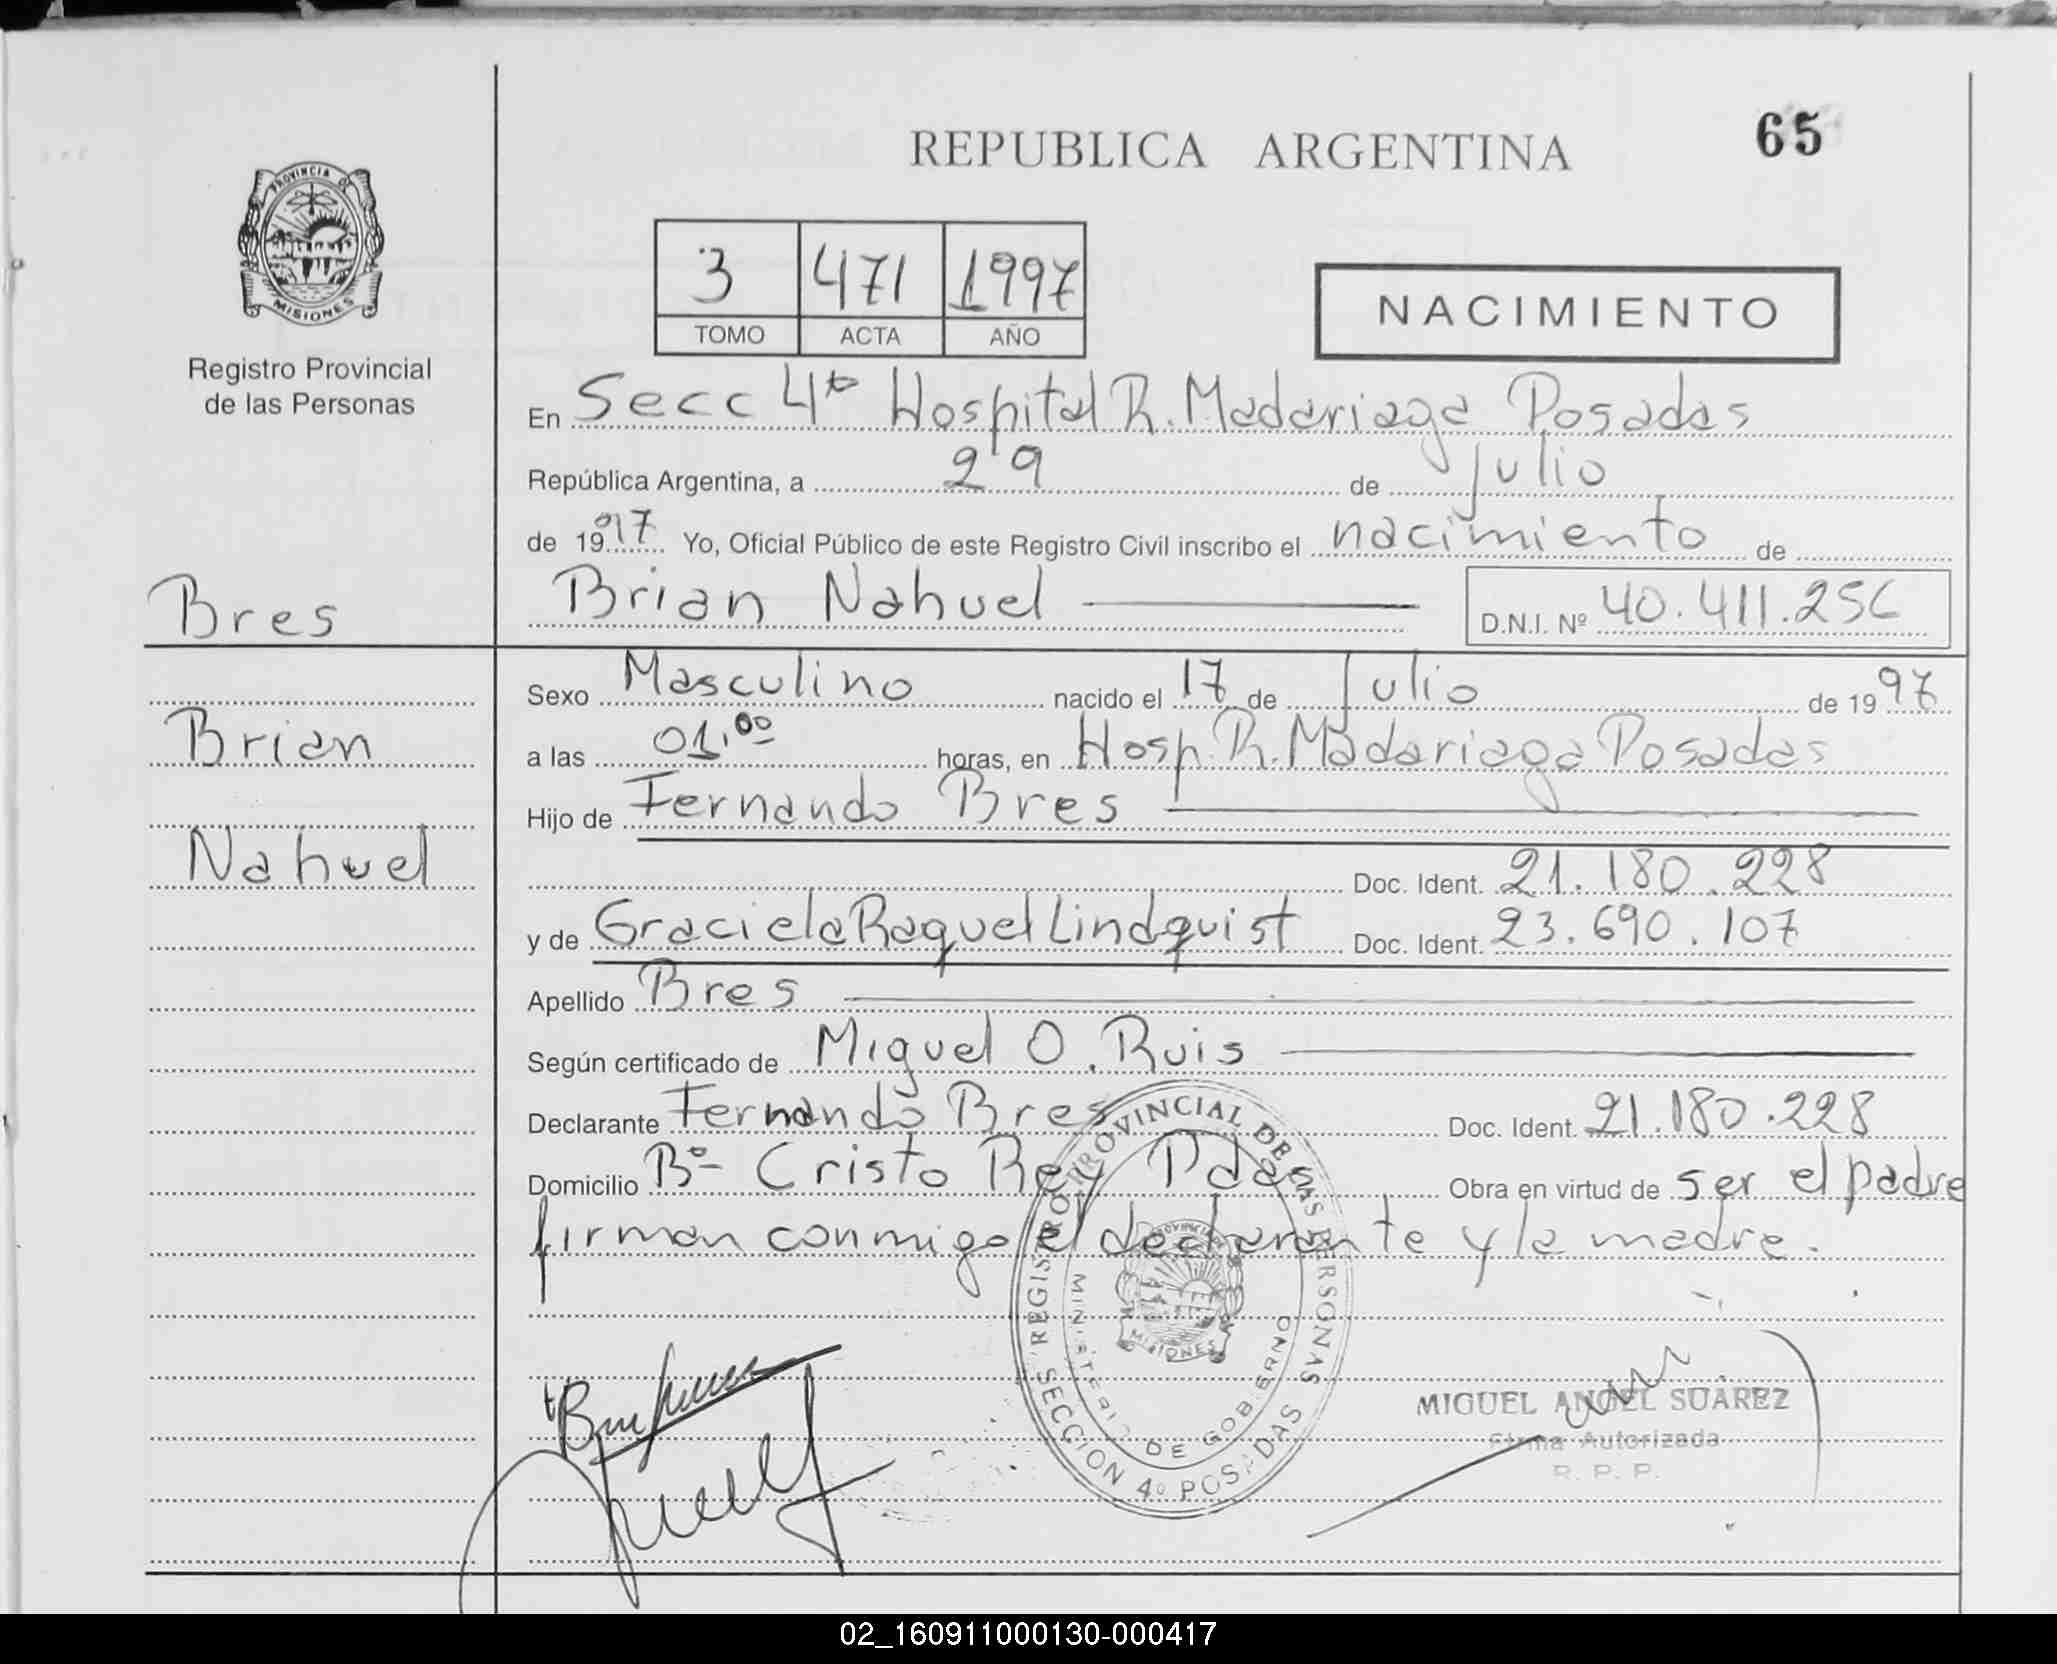 65
REPUBLICA ARGENTINA
PROVINCIA DE
MISIONES
Registro Provincial
de las Personas
3 471 1997
TOMO ACTA AÑO
NACIMIENTO
En Secc 4ta Hospital R. Madariaga Posadas
República Argentina, a 29 de Julio
de 1997 Yo, Oficial Público de este Registro Civil inscribo el nacimiento de
Bres
Brian Nahuel D.N.I. Nº 40.411.256
Sexo Masculino nacido el 17 de Julio de 1997
Brian
a las 01,00 horas, en Hosp. R. Madariaga Posadas
Hijo de Fernando Bres
Nahuel
Doc. Ident. 21.180.228
y de Graciela Raquel Lindquist Doc. Ident. 23.690.107
Apellido Bres
Según certificado de Miguel O. Ruis
Declarante Fernando Bres Doc. Ident. 21.180.228
Domicilio Bº Cristo Rey Pdas Obra en virtud de ser el padre
firman conmigo el declarante y la madre.
REGISTRO PROVINCIAL DE LAS PERSONAS
MINISTERIO DE GOBIERNO
MISIONES
SECCION 4º POSADAS
MIGUEL ANGEL SUÁREZ
Firma Autorizada
R. P. P.
02_160911000130-000417